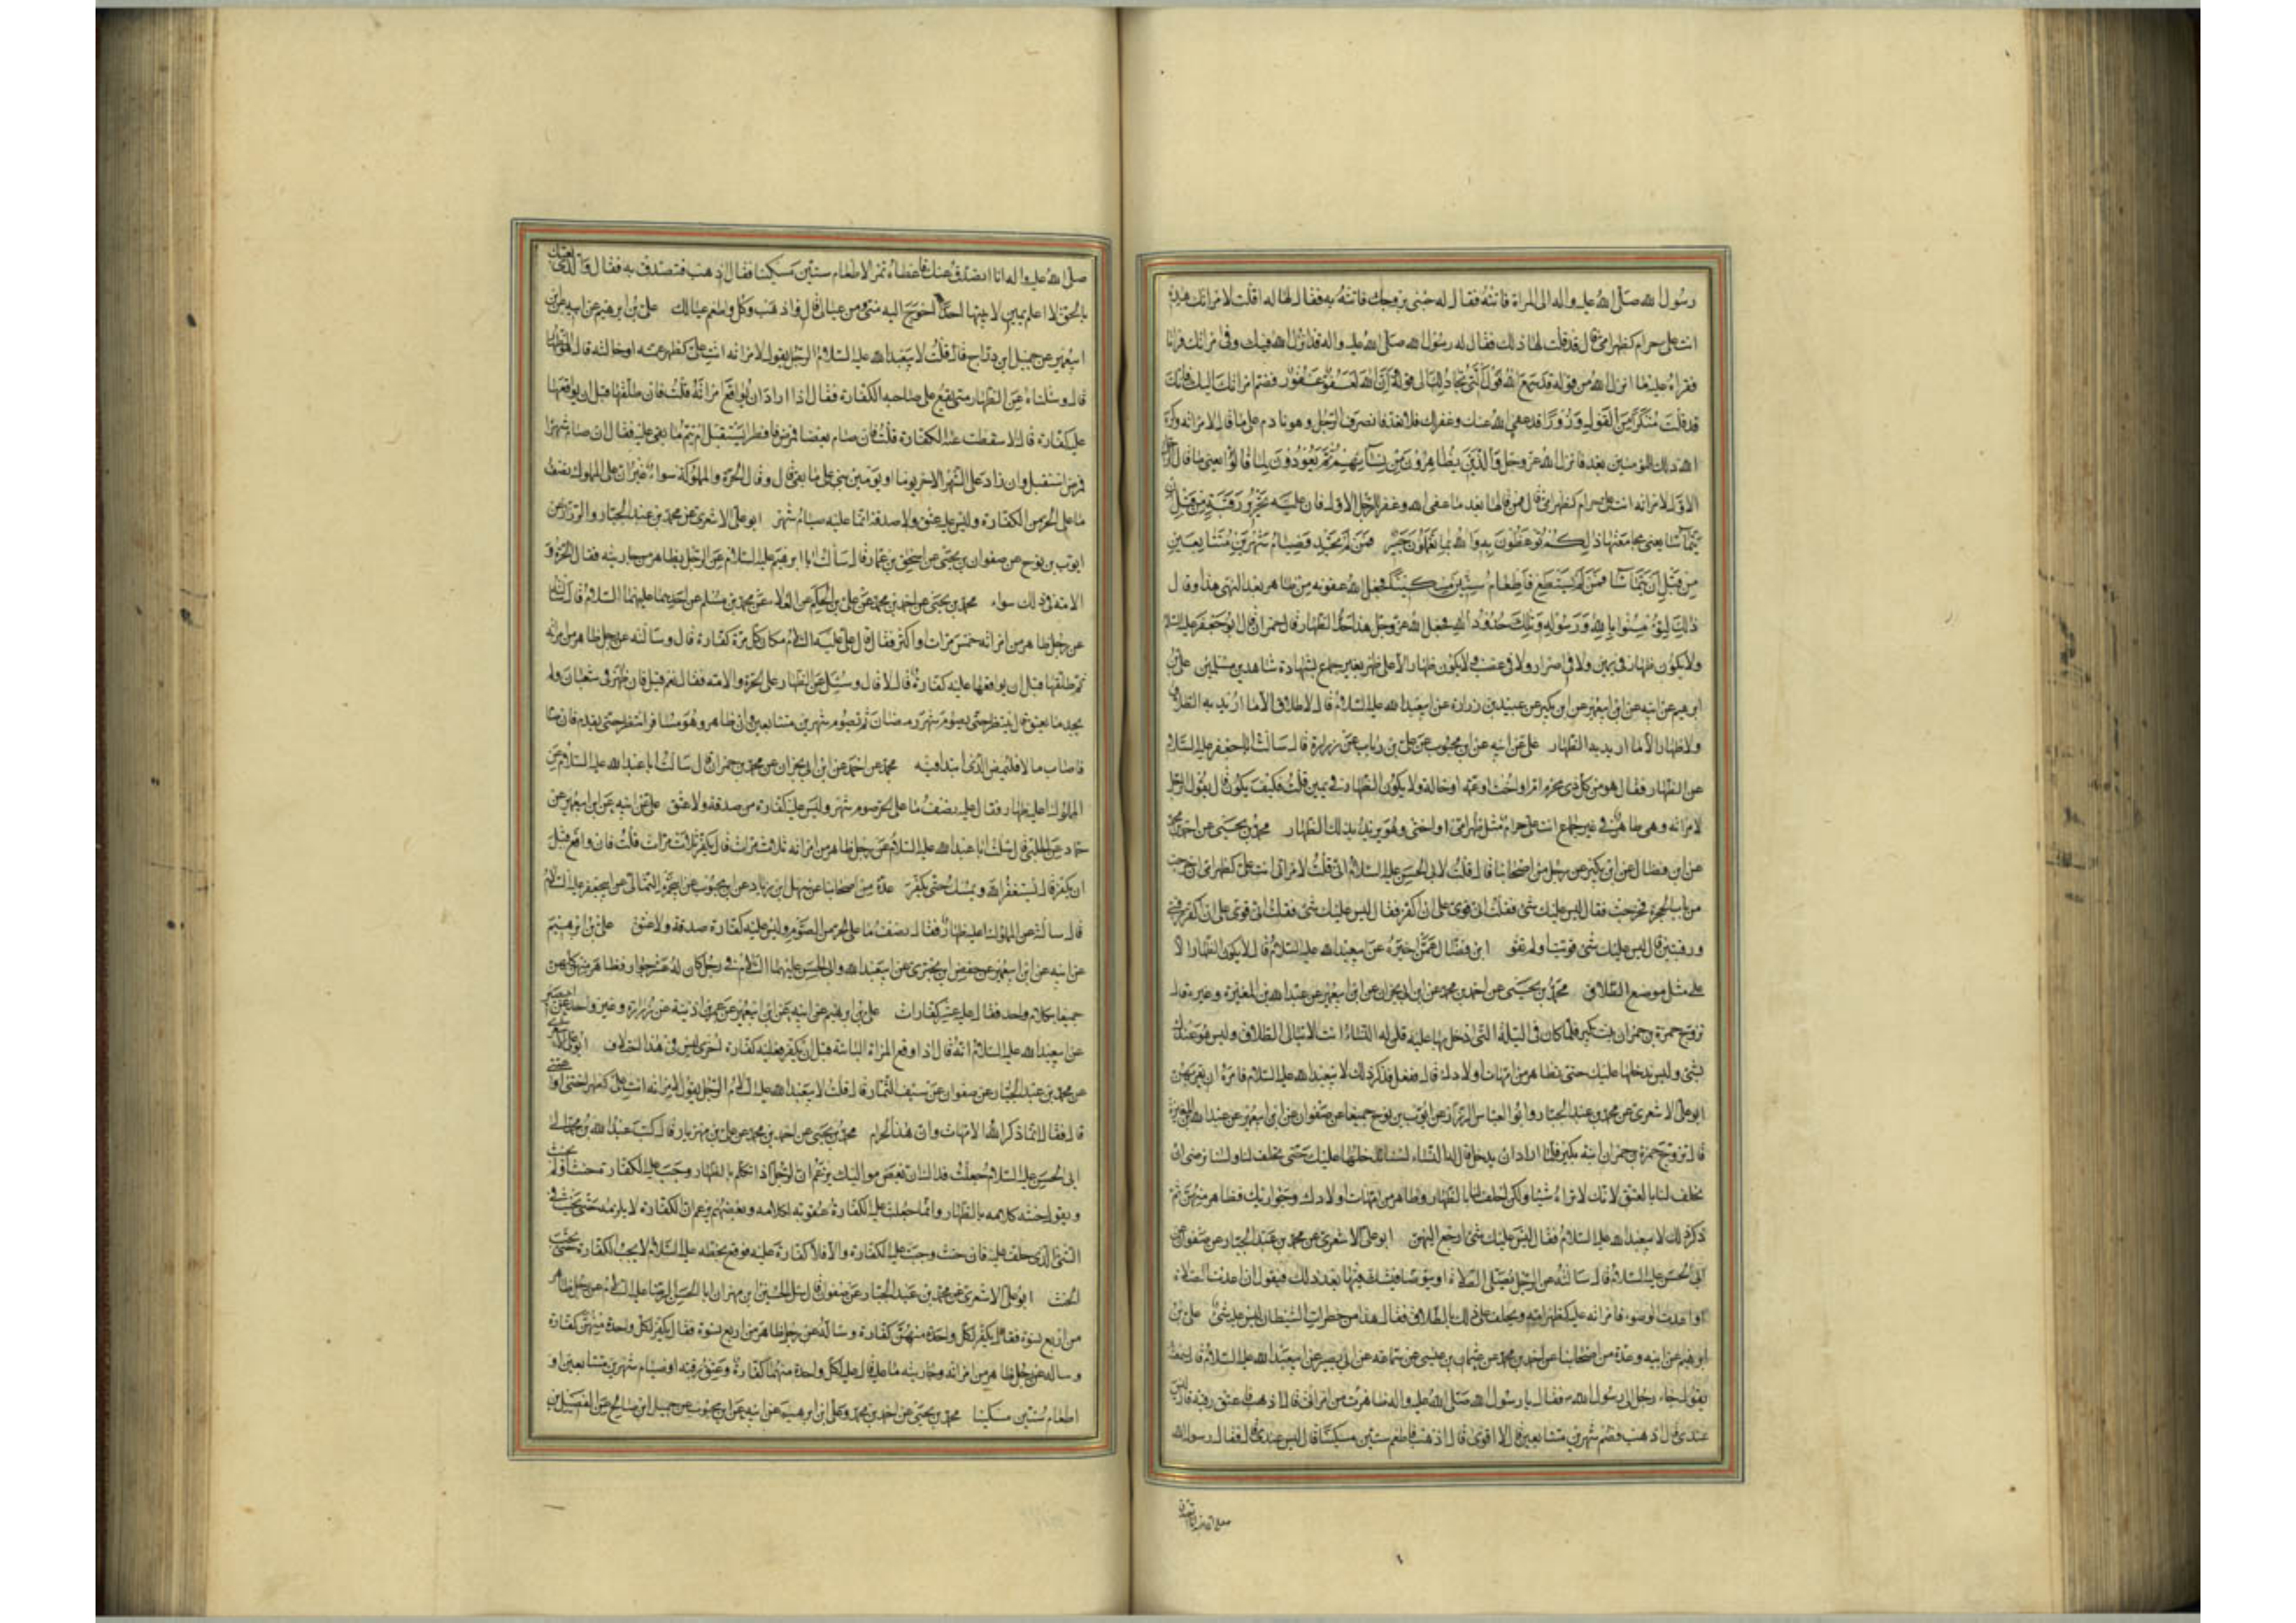 رسول الله صلى الله عليه واله الى المراة فاتته فقال له جئنى بزوجك فاتته به فقال له اقلت لامراتك هذه
انت على حرام كظهر امى قال قد قلت لها ذلك فقال له رسول الله صلى الله عليه واله قد انزل الله فيك وفى امراتك قرانا
فقرا عليه ما انزل الله من قوله قد سمع الله قول التى تجادلك الى قوله ان الله لعفو غفور فضم امراتك اليك فانك
قد قلت منكرا من القول وزورا قد عفى الله عنك وغفر لك فلا تعد فانصرف الرجل وهو نادم على ما قال لامراته وكره
الله ذلك للمؤمنين بعد فانزل الله عز وجل والذين يظاهرون من نسائهم ثم يعودون لما قالوا يعنى ما قال الرجل
الاول لامراته انت على حرام كظهر امى قال فمن قالها بعد ما عفى الله وغفر للرجل الاول فان عليه تحرير رقبة من قبل ان
يتماسا يعنى مجامعتها ذلكم توعظون به والله بما تعملون خبير فمن لم يجد فصيام شهرين متتابعين
من قبل ان يتماسا فمن لم يستطع فاطعام ستين مسكينا فجعل الله عقوبة من ظاهر بعد النهى هذا وقال
ذلك لتؤمنوا بالله ورسوله وتلك حدود الله فجعل الله عز وجل هذا حد الظهار قال حمران قال ابو جعفر عليه السلام
ولا يكون ظهار فى يمين ولا فى اضرار ولا فى غضب ولا يكون ظهار الا على طهر بغير جماع بشهادة شاهدين مسلمين على بن
ابرهيم عن ابيه عن ابن ابى عمير عن ابن بكير عن عبيد بن زرارة عن ابى عبد الله عليه السلام قال لا طلاق الا ما اريد به الطلاق
ولا ظهار الا ما اريد به الظهار على عن ابيه عن ابن محبوب عن على بن رياب عن زرارة قال سالت ابا جعفر عليه السلام
عن الظهار فقال هو من كل ذى محرم ام او اخت او عمة او خالة ولا يكون الظهار فى يمين قلت فكيف يكون قال يقول الرجل
لامراته وهى طاهر فى غير جماع انت على حرام مثل ظهر امى او اختى وهو يريد بذلك الظهار محمد بن يحيى عن احمد بن محمد
عن ابن فضال عن ابن بكير عن رجل من اصحابنا قال قلت لابى الحسن عليه السلام انى قلت لامراتى انت على كظهر امى ان خرجت
من باب الحجرة فخرجت فقال ليس عليك شئ فقلت انى قوى على ان اكفر فقال ليس عليك شئ فقلت انى قوى على ان اكفر رقبة
ورقبتين قال ليس عليك شئ قويت او لم تقو ابن فضال عمن اخبره عن ابى عبد الله عليه السلام قال لا يكون الظهار الا
على مثل موضع الطلاق محمد بن يحيى عن احمد بن محمد عن ابن ابى نجران عن ابن ابى عمير عن عبد الله بن المغيرة وغيره قال
تزوج حمزة بن حمران بنت بكير فلما كان فى الليلة التى ادخل بها عليه قلن له النساء انت لا تبالى الطلاق وليس هو عندك
بشئ وليس ندخلها عليك حتى تظاهر من امهات اولادك قال ففعل فذكر ذلك لابى عبد الله عليه السلام فامره ان يقربهن
ابو على الاشعرى عن محمد بن عبد الجبار وابو العباس الرزاز عن ايوب بن نوح جميعا عن صفوان عن ابن ابى عمير عن عبد الله بن المغيرة
قال تزوج حمزة بن حمران ابنة بكير فلما اراد ان يدخل بها قال له النساء لسنا ندخلها عليك حتى تحلف لنا ولسنا نرضى ان
تحلف لنا بالعتق لانك لا تراه شيئا ولكن احلف لنا بالظهار وظاهر من امهات اولادك وجواريك فظاهر منهن ثم
ذكر ذلك لابى عبد الله عليه السلام فقال ليس عليك شئ ارجع اليهن ابو على الاشعرى عن محمد بن عبد الجبار عن صفوان عن
ابى الحسن عليه السلام قال سالته عن الرجل يصلى الصلاة او يتوضا فيشك فيها بعد ذلك فيقول ان اعدت الصلاة
او اعدت الوضوء فامراته عليه كظهر امه ويحلف على ذلك بالطلاق فقال هذا من خطوات الشيطان ليس عليه شئ على بن
ابرهيم عن ابيه وعدة من اصحابنا عن احمد بن محمد عن عثمان بن عيسى عن سماعة عن ابى بصير عن ابى عبد الله عليه السلام قال سمعته
يقول جاء رجل الى رسول الله فقال يا رسول الله صلى الله عليه واله ظاهرت من امراتى قال اذهب فاعتق رقبة قال ليس
عندى قال اذهب فصم شهرين متتابعين قال لا اقوى قال اذهب فاطعم ستين مسكينا قال ليس عندى قال فقال رسول الله
صلى الله عليه واله انا اتصدق عنك فاعطاه تمر الاطعام ستين مسكينا فقال اذهب فتصدق به فقال والذى بعثك
بالحق لا اعلم بين لابتيها احدا احوج اليه منى ومن عيالى قال واذهب وكل واطعم عيالك على بن ابرهيم عن ابيه عن ابن
ابى عمير عن جميل ابن دراج قال قلت لابى عبد الله عليه السلام الرجل يقول لامراته انت على كظهر عمته او خالته قال هو الظهار
قال وسئلناه عن الظهار متى يقع على صاحبه الكفارة فقال اذا اراد ان يواقع امراته قلت فان طلقها قبل ان يواقعها
عليه كفارة قال لا سقطت عنه الكفارة قلت فان صام بعضا فمرض فافطر ايستقبل ام يتم ما بقى عليه فقال ان صام شهرا
فمرض استقبل وان زاد على الشهر الاخر يوما او يومين بنى على ما بقى قال وقال الحرة والمملوكة سواء غير ان على المملوك نصف
ما على الحر من الكفارة وليس عليه عتق ولا صدقة انما عليه صيام شهر ابو على الاشعرى عن محمد بن عبد الجبار والرزاز عن
ايوب بن نوح عن صفوان بن يحيى عن اسحق بن عمار قال سالت ابا ابرهيم عليه السلام عن الرجل يظاهر من جاريته فقال الحرة و
الامة فى ذلك سواء محمد بن يحيى عن احمد بن محمد عن على بن الحكم عن العلاء عن محمد بن مسلم عن احدهما عليهما السلام قال سالته
عن رجل ظاهر من امراته خمس مرات او اكثر فقال قال على عليه السلام مكان كل مرة كفارة قال وسالته عن رجل ظاهر من امراته
ثم طلقها قبل ان يواقعها عليه كفارة قال لا قال وسئل عن الظهار على الحرة والامة فقال نعم قيل فان ظاهر فى شعبان ولم
يجد ما يعتق قال ينتظر حتى يصوم شهر رمضان ثم يصوم شهرين متتابعين وان ظاهر وهو مسافر انتظر حتى يقدم فان صام
فاصاب مالا فليمض الذى ابتدا فيه محمد عن احمد عن ابن ابى نجران عن محمد بن حمران قال سالت ابا عبد الله عليه السلام عن
المملوك اعليه ظهار فقال عليه نصف ما على الحر صوم شهر وليس عليه كفارة من صدقة ولا عتق على عن ابيه عن ابن ابى عمير عن
حماد عن الحلبى قال سئلت ابا عبد الله عليه السلام عن رجل ظاهر من امراته ثلاث مرات قال يكفر ثلاث مرات قلت فان واقع قبل
ان يكفر قال يستغفر الله ويمسك حتى يكفر عدة من اصحابنا عن سهل ابن زياد عن ابن محبوب عن ابى حمزة الثمالى عن ابى جعفر عليه السلام
قال سالته عن المملوك اعليه ظهار فقال نصف ما على الحر من الصوم وليس عليه كفارة صدقة ولا عتق على بن ابرهيم
عن ابيه عن ابن ابى عمير عن حفص ابن بخترى عن ابى عبد الله وابى الحسن عليهما السلام فى رجل كان له عشر جوار فظاهر منهن كلهن
جميعا بكلام واحد فقال عليه عشر كفارات على بن ابرهيم عن ابيه عن ابن ابى عمير عن عمر بن اذينة عن زرارة وغير واحد عن ابى بصير
عن ابى عبد الله عليه السلام انه قال اذا واقع المراة الثانية قبل ان يكفر فعليه كفارة اخرى ليس فى هذا اختلاف ابو على الاشعرى
عن محمد بن عبد الجبار عن صفوان عن سيف التمار قال قلت لابى عبد الله عليه السلام الرجل يقول لامراته انت على كظهر اختى او عمتى
قال فقال انما ذكر الله الامهات وان هذا لحرام محمد بن يحيى عن احمد بن محمد عن على بن مهزيار قال كتب عبد الله بن محمد الى
ابى الحسن عليه السلام جعلت فداك ان بعض مواليك يزعم ان الرجل اذا تكلم بالظهار وجبت عليه الكفارة حنث او لم يحنث
ويقول حنثه كلامه بالظهار وانما جعلت عليه الكفارة عقوبة لكلامه وبعضهم يزعم ان الكفارة لا يلزمه حتى يحنث فى
الشئ الذى حلف عليه فان حنث وجبت عليه الكفارة والا فلا كفارة عليه فوقع بخطه عليه السلام لا يجب الكفارة حتى يجب
الحنث ابو على الاشعرى عن محمد بن عبد الجبار عن صفوان قال سئل الحسين ابن مهران ابا الحسن الرضا عليه السلام عن رجل ظاهر
من اربع نسوة فقال يكفر لكل واحدة منهن كفارة وساله عن رجل ظاهر من اربع نسوة فقال يكفر لكل واحدة منهن كفارة
وساله عن رجل ظاهر من امراته وجاريته ما عليه قال عليه لكل واحدة منهما كفارة وعتق رقبة او صيام شهرين متتابعين او
اطعام ستين مسكينا محمد بن يحيى عن احمد بن محمد وعلى ابن ابرهيم عن ابيه عن ابن محبوب عن جميل ابن صالح عن الفضيل بن